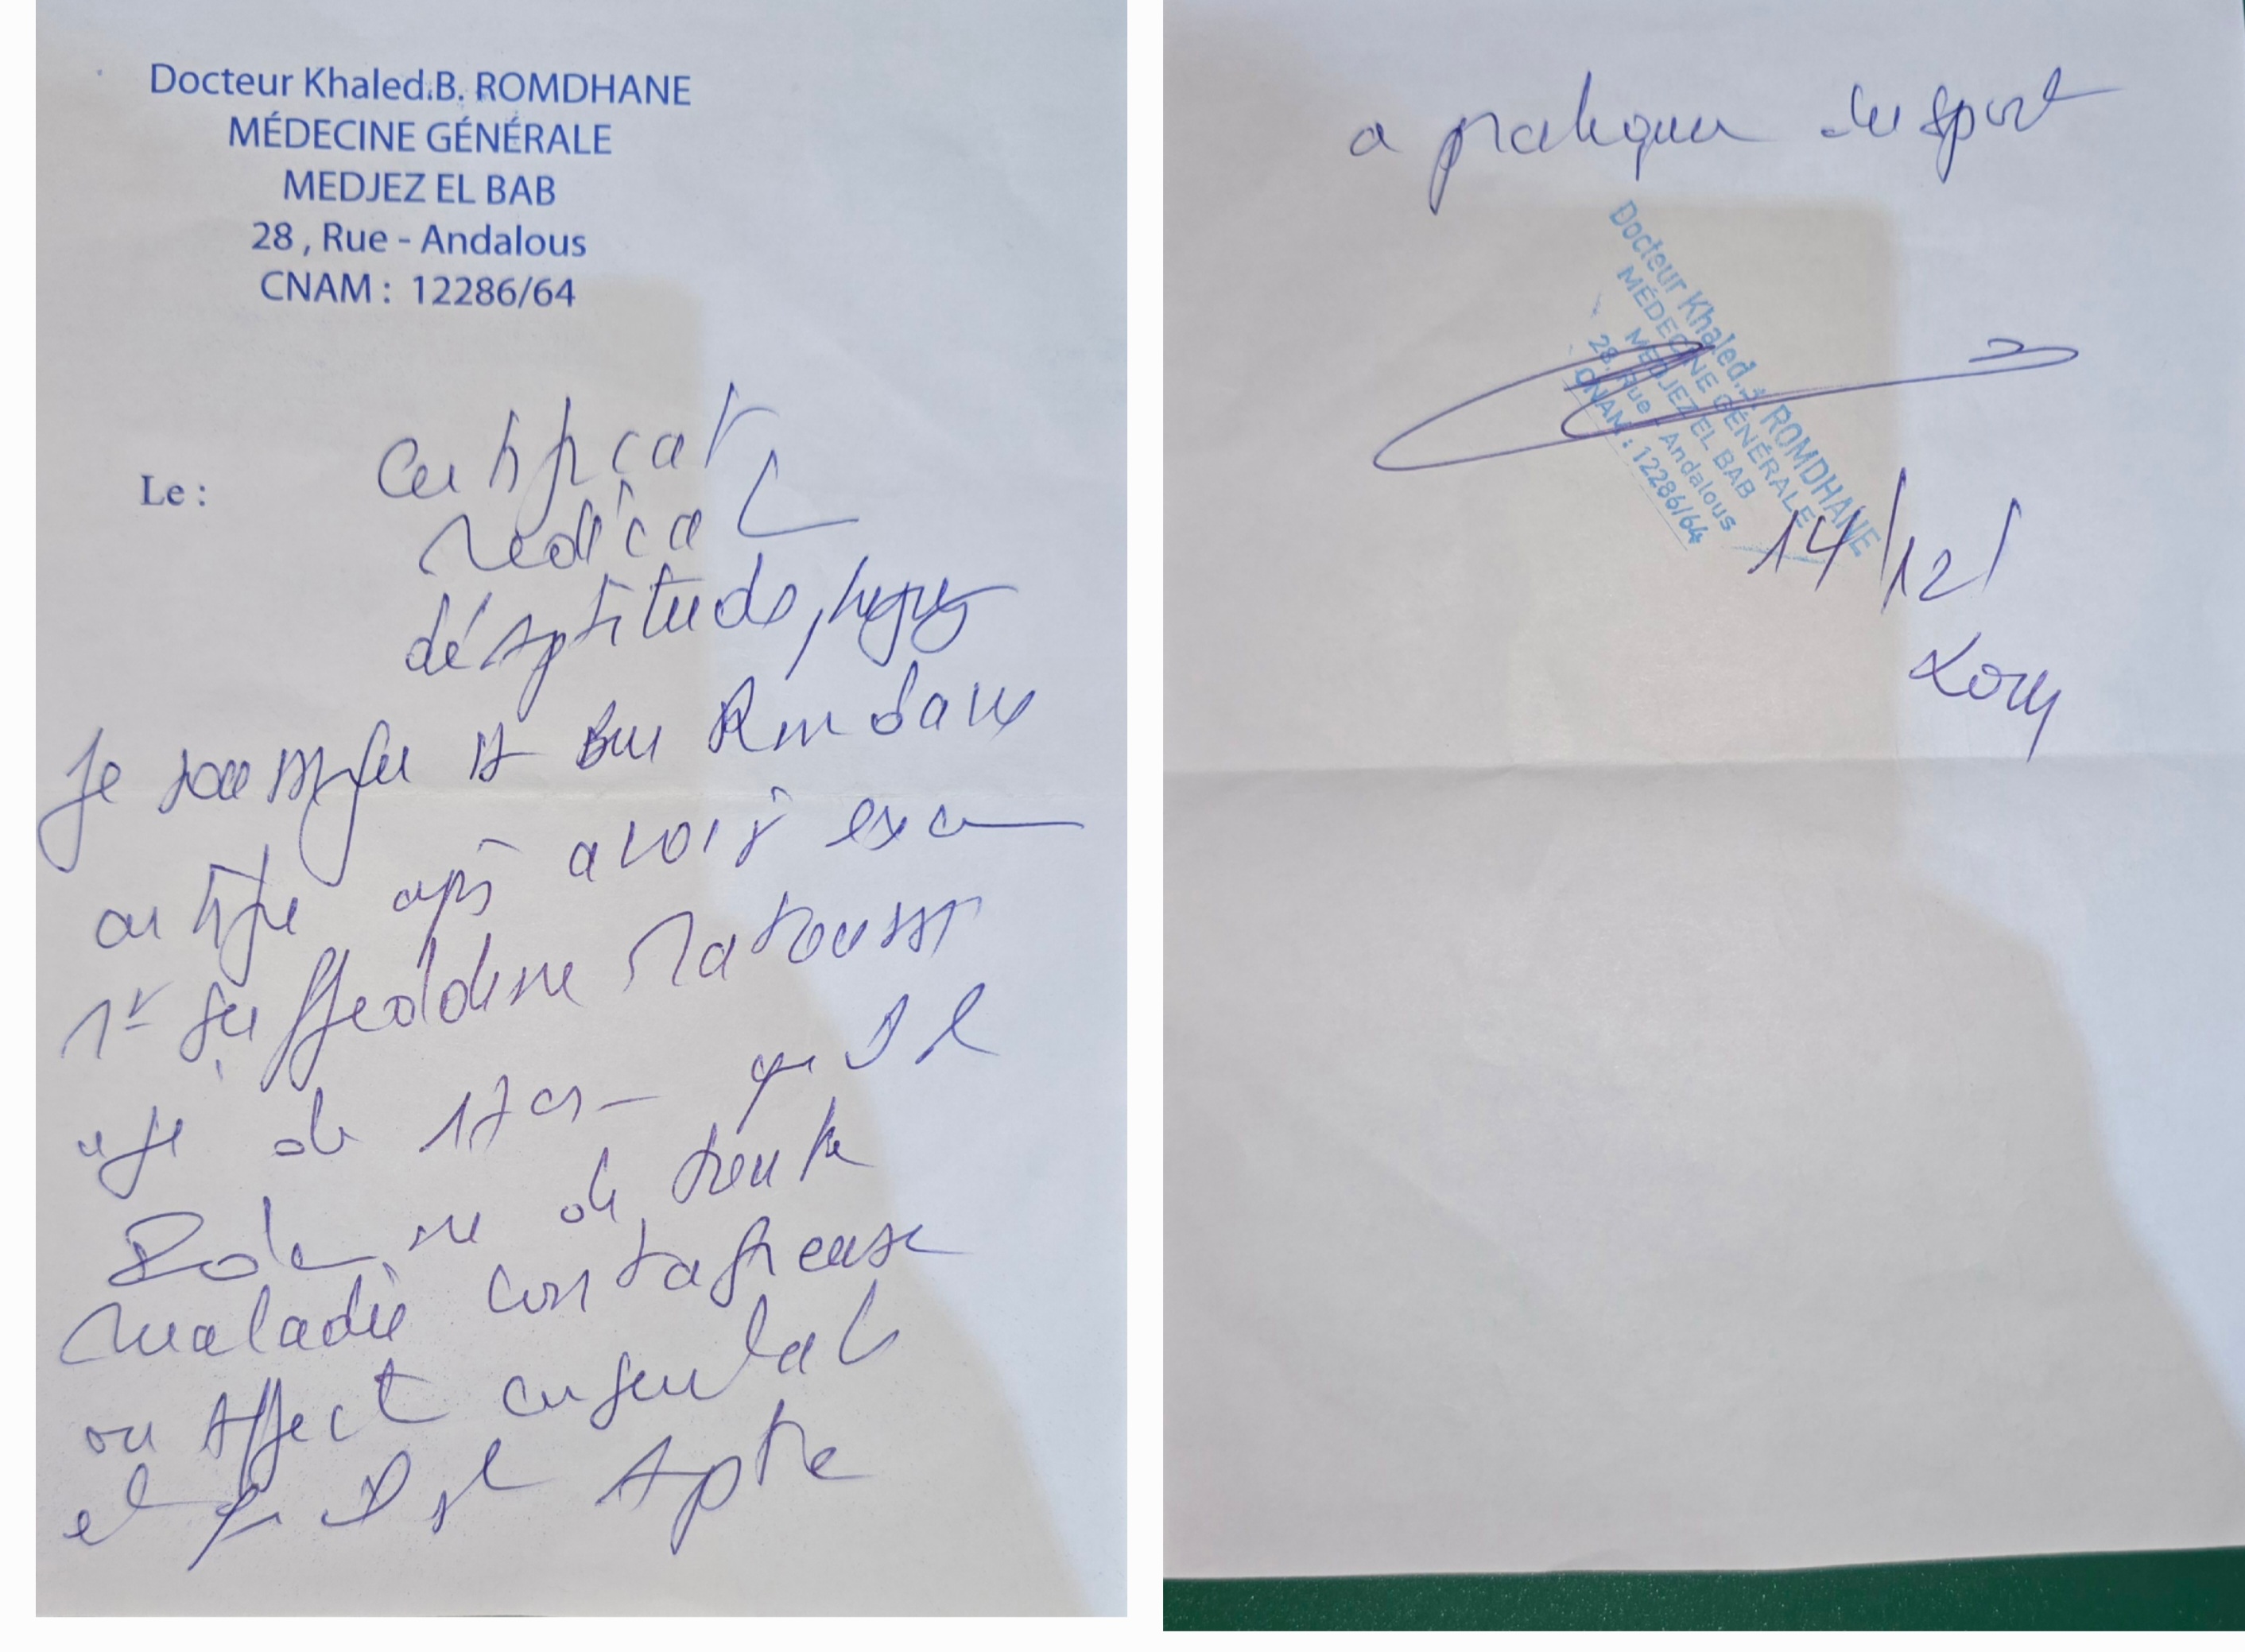 Docteur Khaled.B. ROMDHANE
MÉDECINE GÉNÉRALE
MEDJEZ EL BAB
28 , Rue - Andalous
CNAM : 12286/64
Le :
Certificat
Médical
d'Aptitude physq
Je soussigné Dr Ben Romdane
certifie après avoir exa
Mr Seiffeddine
age de 17 ans qu'Il
Indemne de toute
maladie contagieuse
ou Affect congenital
et qu'Il est Apte
a pratiquer du sport
Docteur Khaled.B. ROMDHANE
MÉDECINE GÉNÉRALE
MEDJEZ EL BAB
28, Rue - Andalous
CNAM : 12286/64
14/12/